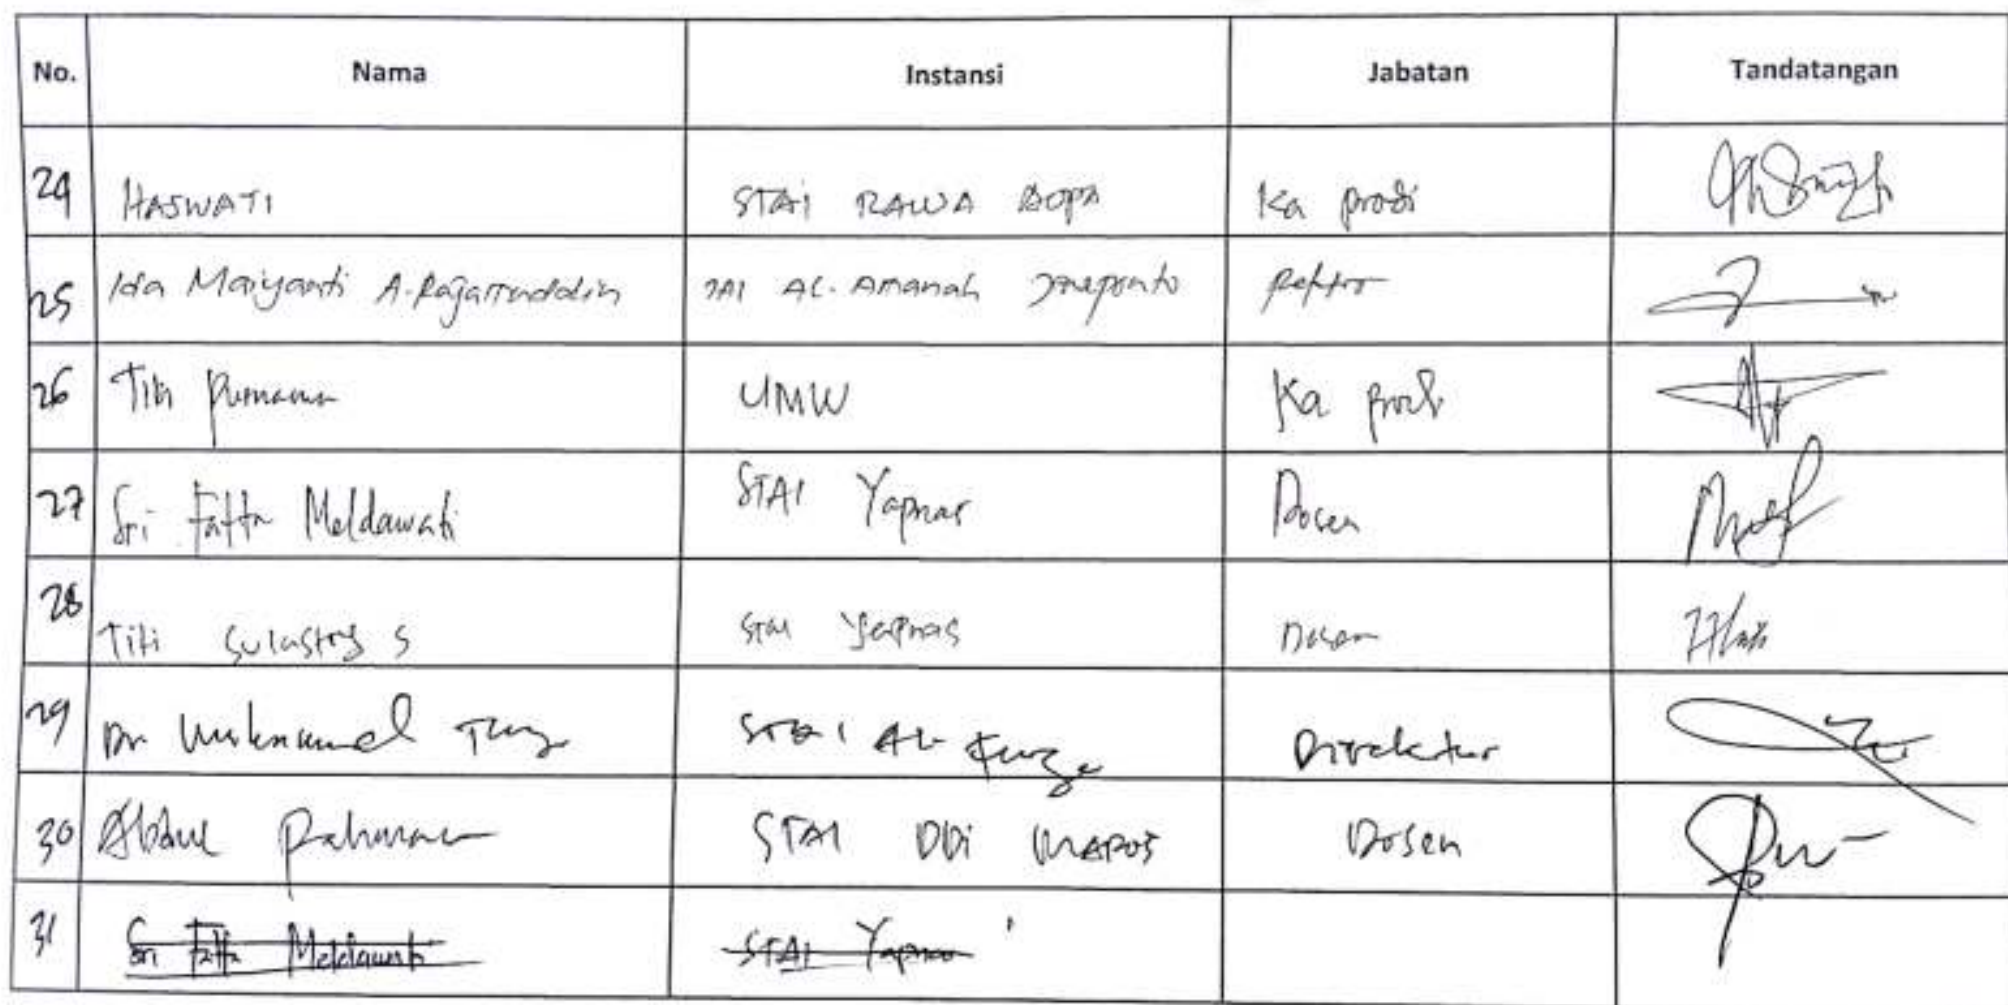 No. Nama Instansi Jabatan Tandatangan
24 HASWATI STAI RAWA AOPA Ka prodi
25 Ida Mariyanti A. Rajamuddin IAI AL-Amanah Jeneponto Rektor
26 Titi Purnama UMW Ka prodi
27 Sri Fatta Meldawati STAI Yapnas Dosen
28 Titi Sulastry S STAI Yapnas Dosen
29 Dr. Muhammad STAI AL- Direktur
30 Abdul Rahman STAI DDI MAROS Dosen
31 Sri Fatta Meldawati STAI Yapnas